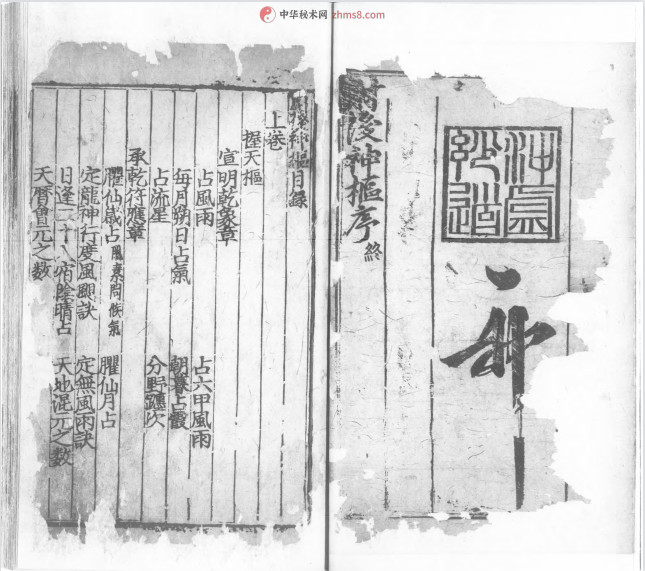 中华秘术网 zhms8.com
肘後神樞序終
後神樞目錄
上卷
握天樞
宣明乾象章
占風雨 占六甲風雨
每月朔日占氣 朝暮占霞
占流星 分野躔次
承乾符應章
臞仙歲占 素問候氣 臞仙月占
定龍神行度風颶訣 定無風雨訣
日逢二十八宿陰晴占 天地混元之數
天曆會元之数